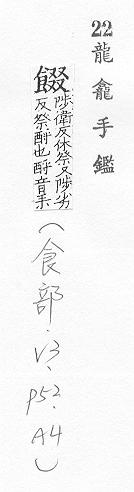 22龍龕手鑑
餟陟衛反休祭又陟劣
反祭酹也酹音耒
（食部．V3．P52．A4）